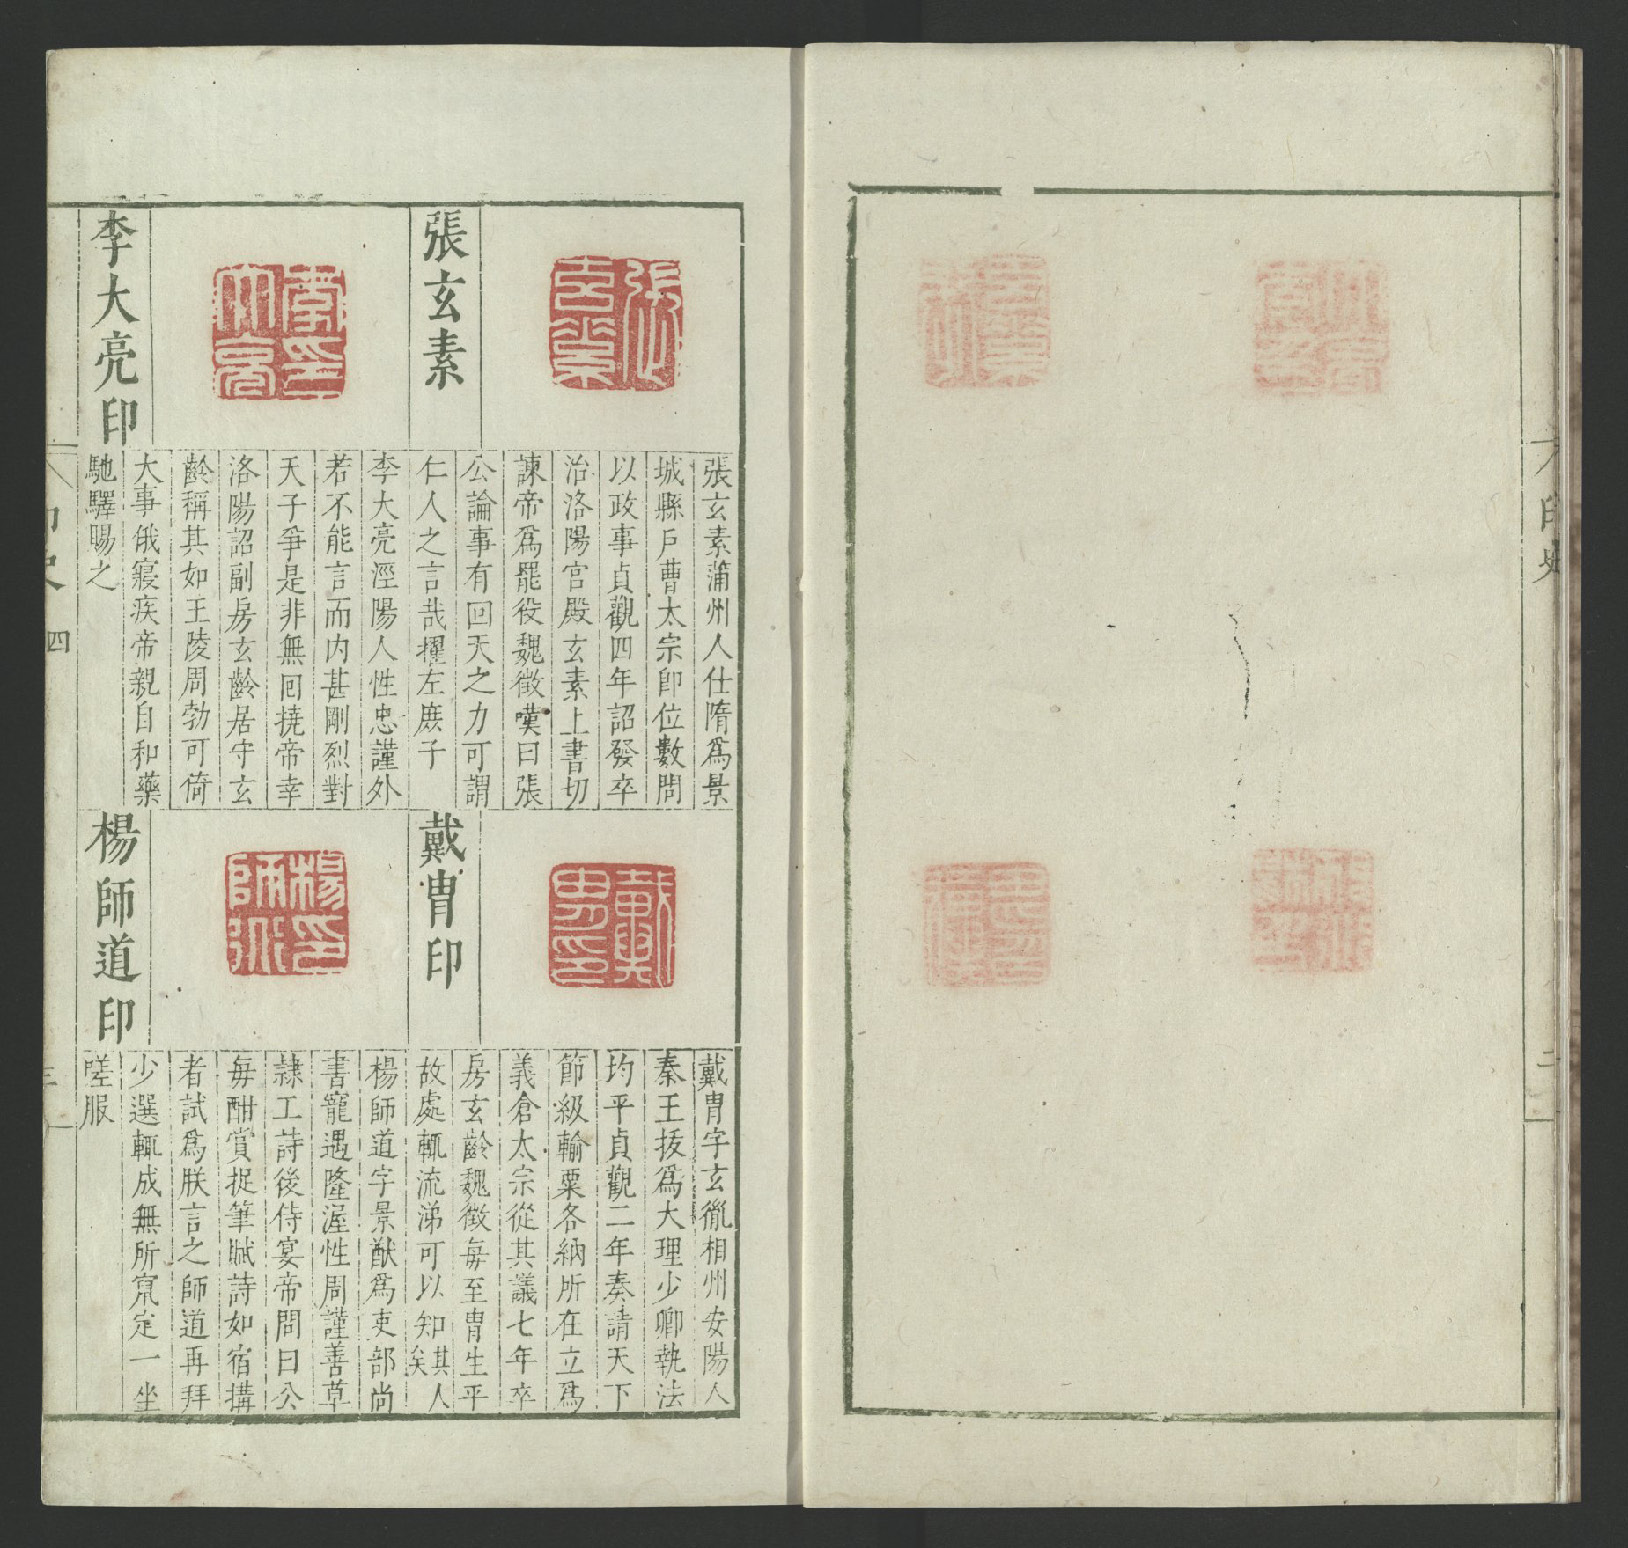 張玄素
張玄素蒲州人仕隋爲景
城縣戶曹太宗即位數問
以政事貞觀四年詔發卒
治洛陽宮殿玄素上書切
諫帝爲罷役魏徵嘆曰張
公論事有回天之力可謂
仁人之言哉擢左庶子
李大亮印
李大亮涇陽人性忠謹外
若不能言而内甚剛烈對
天子爭是非無回撓帝幸
洛陽詔副房玄齡居守玄
齡稱其如王陵周勃可倚
大事俄寢疾帝親自和藥
馳驛賜之
戴胄印
戴胄字玄胤相州安陽人
秦王拔爲大理少卿執法
均平貞觀二年奏請天下
節級輸粟各納所在立爲
義倉太宗從其議七年卒
房玄齡魏徵每至胄生平
故處輒流涕可以知其人矣
楊師道印
楊師道字景猷爲吏部尚
書寵遇隆渥性周謹善草
隸工詩後侍宴帝問曰公
每酣賞捉筆賦詩如宿搆
者試爲朕言之師道再拜
少選輒成無所竄定一坐
嗟服
印史
四
三
張玄素
李印大亮
戴胄印
楊印師道
印史